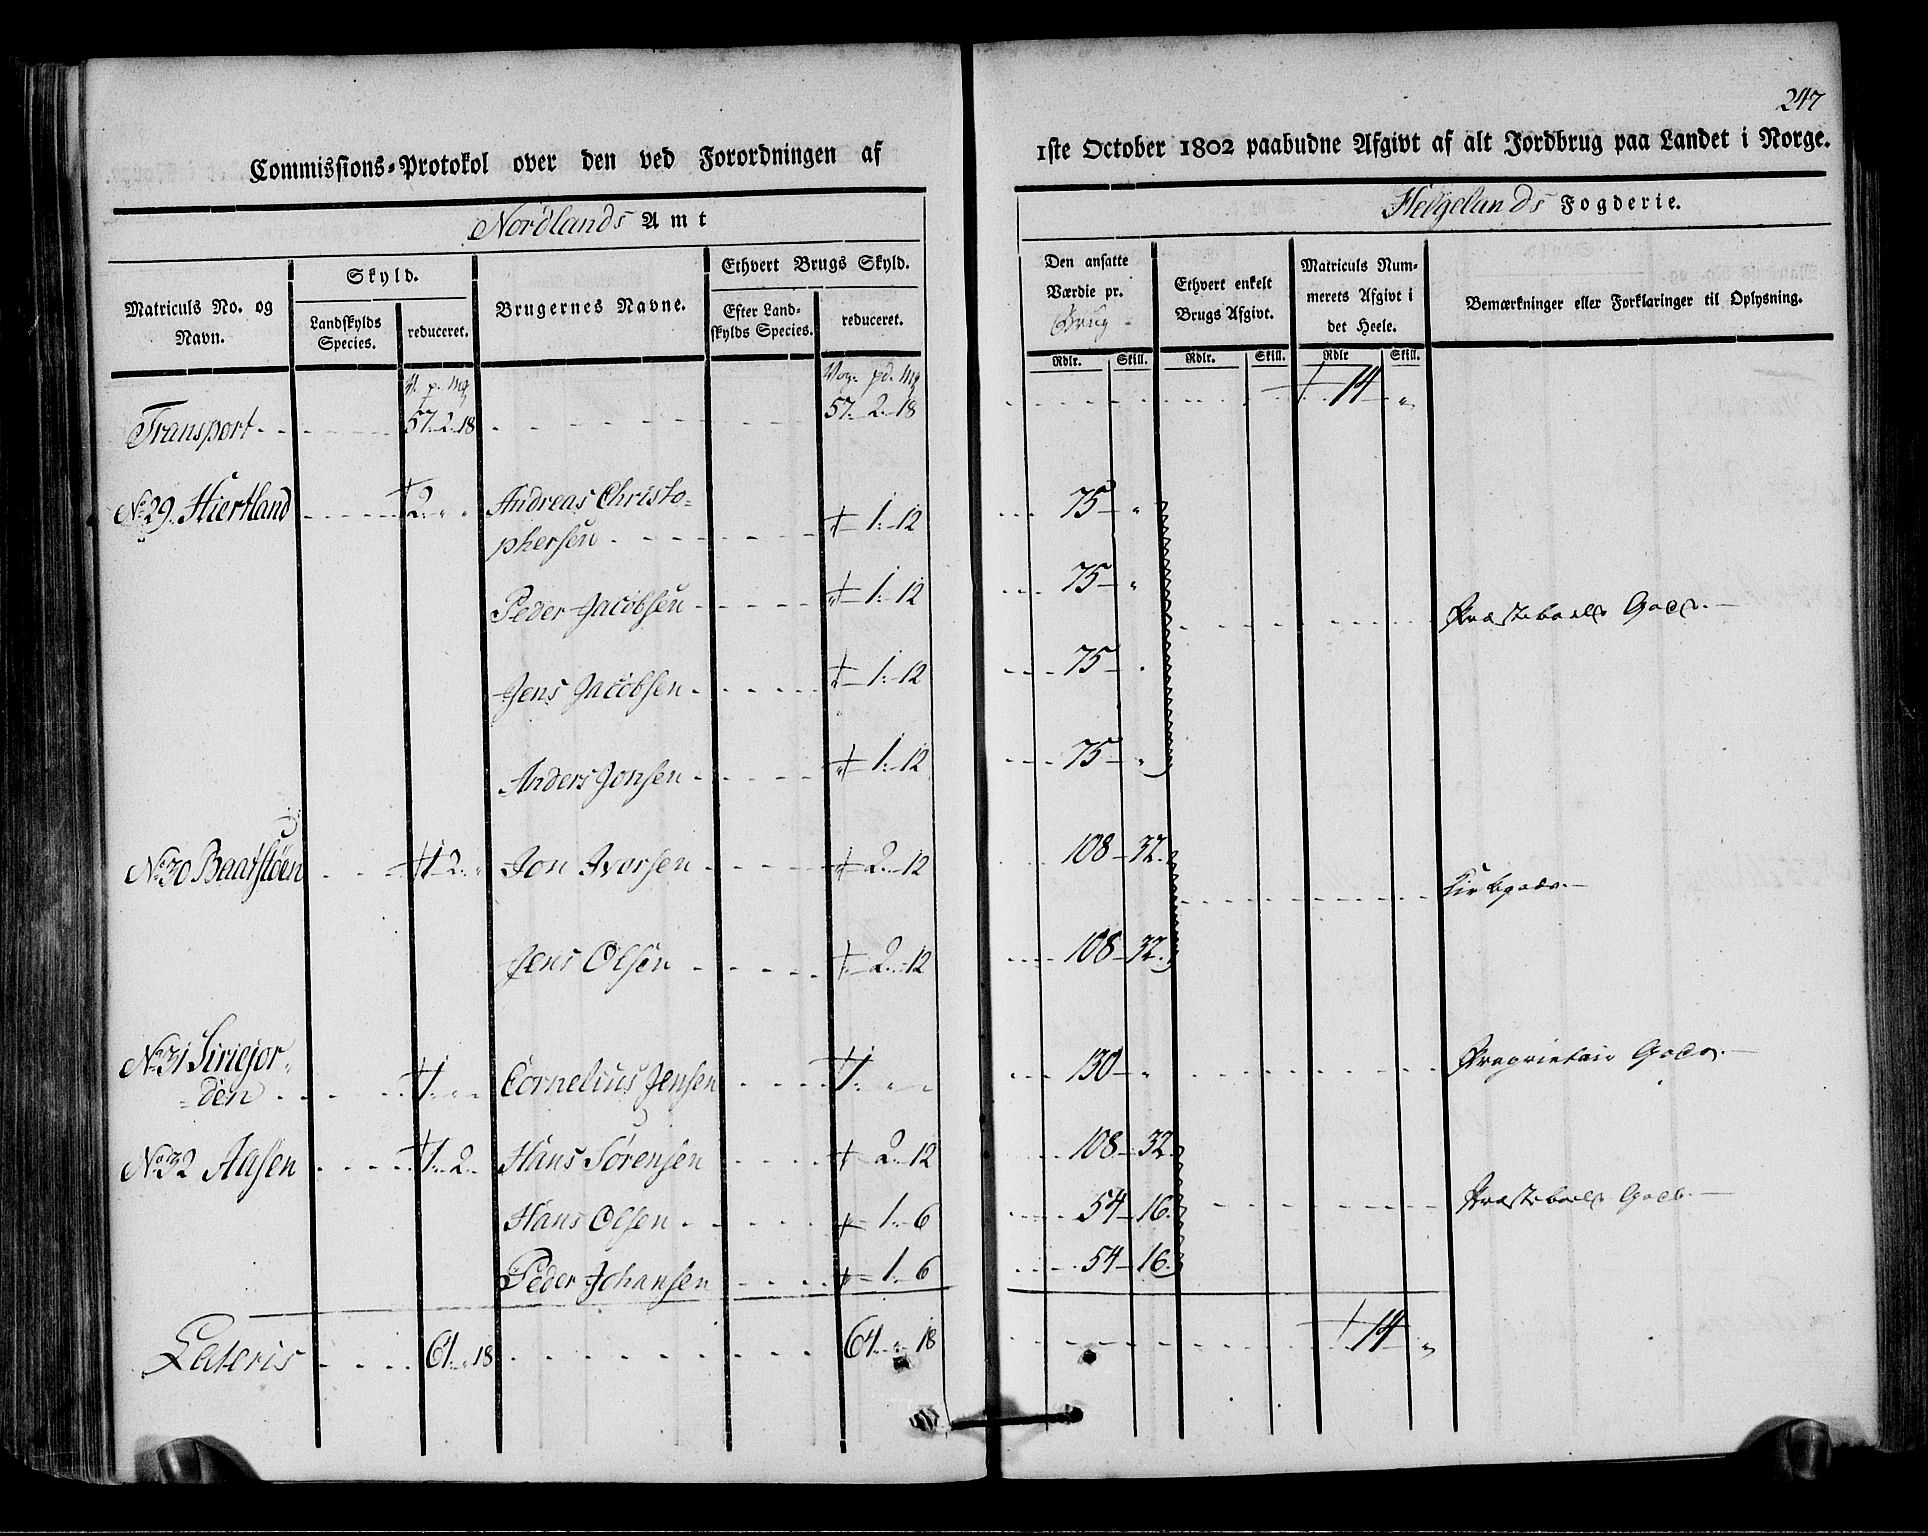 247
Commissions-Protokol over den ved Forordningen af 1ste October 1802 paabudne Afgivt af alt Jordbrug paa Landet i Norge.
Nordlands Amt
Helgelands Fogderie.
Matriculs No. og Navn.
Skyld.
Landskylds Species.
reduceret.
Brugernes Navne.
Ethvert Brugs Skyld.
Efter Landskylds Species.
reduceret.
Den ansatte Værdie pr. Brug
Rdlr. Skill.
Ethvert enkelt Brugs Afgivt.
Rdlr. Skill.
Matriculs Nummerets Afgivt i det Heele.
Rdlr Skill.
Bemærkninger eller Forklaringer til Oplysning.
V. p. mg
Vog. pd. mg
Transport 57. 2. 18 57. 2. 18 14 "
No 29. Hiertland 2. " " Andreas Christo-
phersen " 1. 12 75 "
Peder Jacobsen " 1. 12 75 " Præsteboels Gods.
Jens Jacobsen " 1. 12 75 "
Anders Jonsen " 1. 12 75 "
No 30 Baadsløen 1 2. " Jon Iversen " 2. 12 108 32.
Kirkegods.
Jens Olsen " 2. 12 108 32.
No 31 Siriejor-
den 1. " " Cornelius Jensen 1. " " 130 " Proprietair Gods.
No 32 Aasen 1. 2. " Hans Sørensen " 2. 12 108 32.
Hans Olsen " 1. 6 54 16. Præsteboels Gods.
Peder Johansen " 1. 6 54 16.
Lateris 64. " 18 64. " 18 14 "